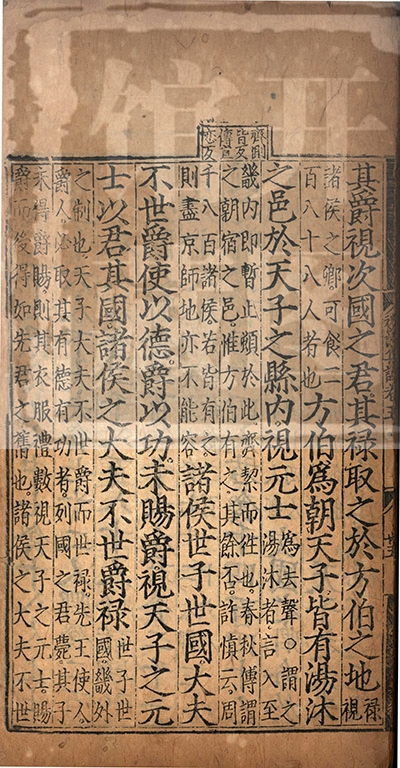 齊側
皆反
傳直
戀反
其爵視次國之君其禄取之於方伯之地
禄
視
諸侯之卿可食二
百八十八人者也
方伯爲朝天子皆有湯沐
之邑於天子之縣内視元士
爲去聲○謂之
湯沐者言入至
畿内即暫止頮於此齊潔而徃也春秋傳謂
之朝宿之邑惟方伯有之其餘否許慎云周
千八百諸侯若皆有之
則盡京師地亦不能容
諸侯世子世國大夫
不世爵使以德爵以功未賜爵視天子之元
士以君其國諸侯之大夫不世爵禄
世子世
國畿外
之制也天子大夫不世爵而世禄先王使人
爵人必取其有德有功者列國之君薨其子
未得爵賜則其衣服禮數視天子之元士賜
爵而後得如先君之舊也諸侯之大夫不世